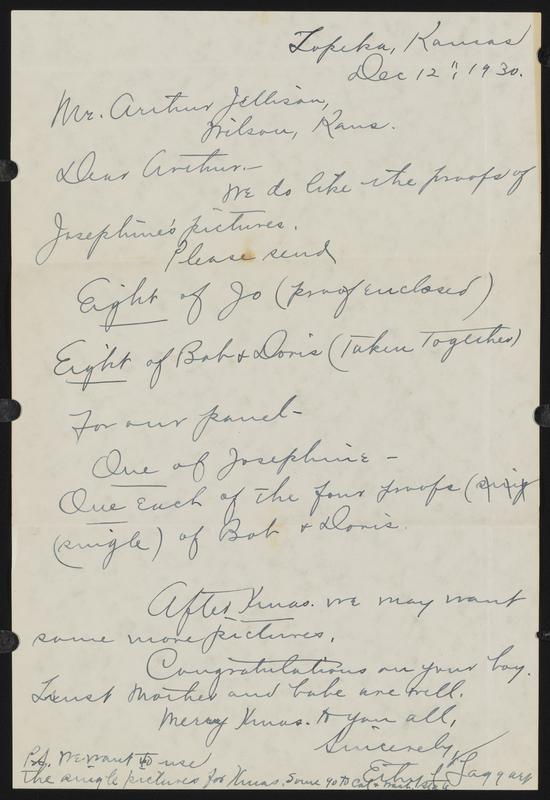 Topeka, Kansas
Dec 12", 1930.
Mr. Arthur Jellison,
Wilson, Kans.
Dear Arthur.—
We do like the proofs of
Josephine's pictures.
Please send
Eight of Jo (proof enclosed)
Eight of Bob & Doris (Taken Together)
For our panel—
One of Josephine —
One Each of the four proofs (sing
(single) of Bob & Doris.
After Xmas. we may want
some more pictures.
Congratulations on your boy.
Trust Mother and babe are well.
Merry Xmas. to you all,
Sincerely,
L Laggart
P.S. We want to use
the single pictures for Xmas. Some go to Cal &